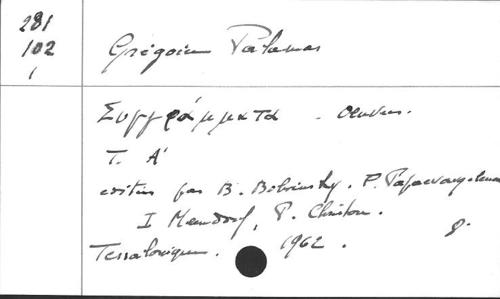 281
102
1
Grégoire Palamas
Συγγράμματα . Oeuvres.
T. A'
édités par B. Bobrinsky. P. Papaevangelou
I Meyendorf, P. Christou.
Tessalonique. 1962. 8.